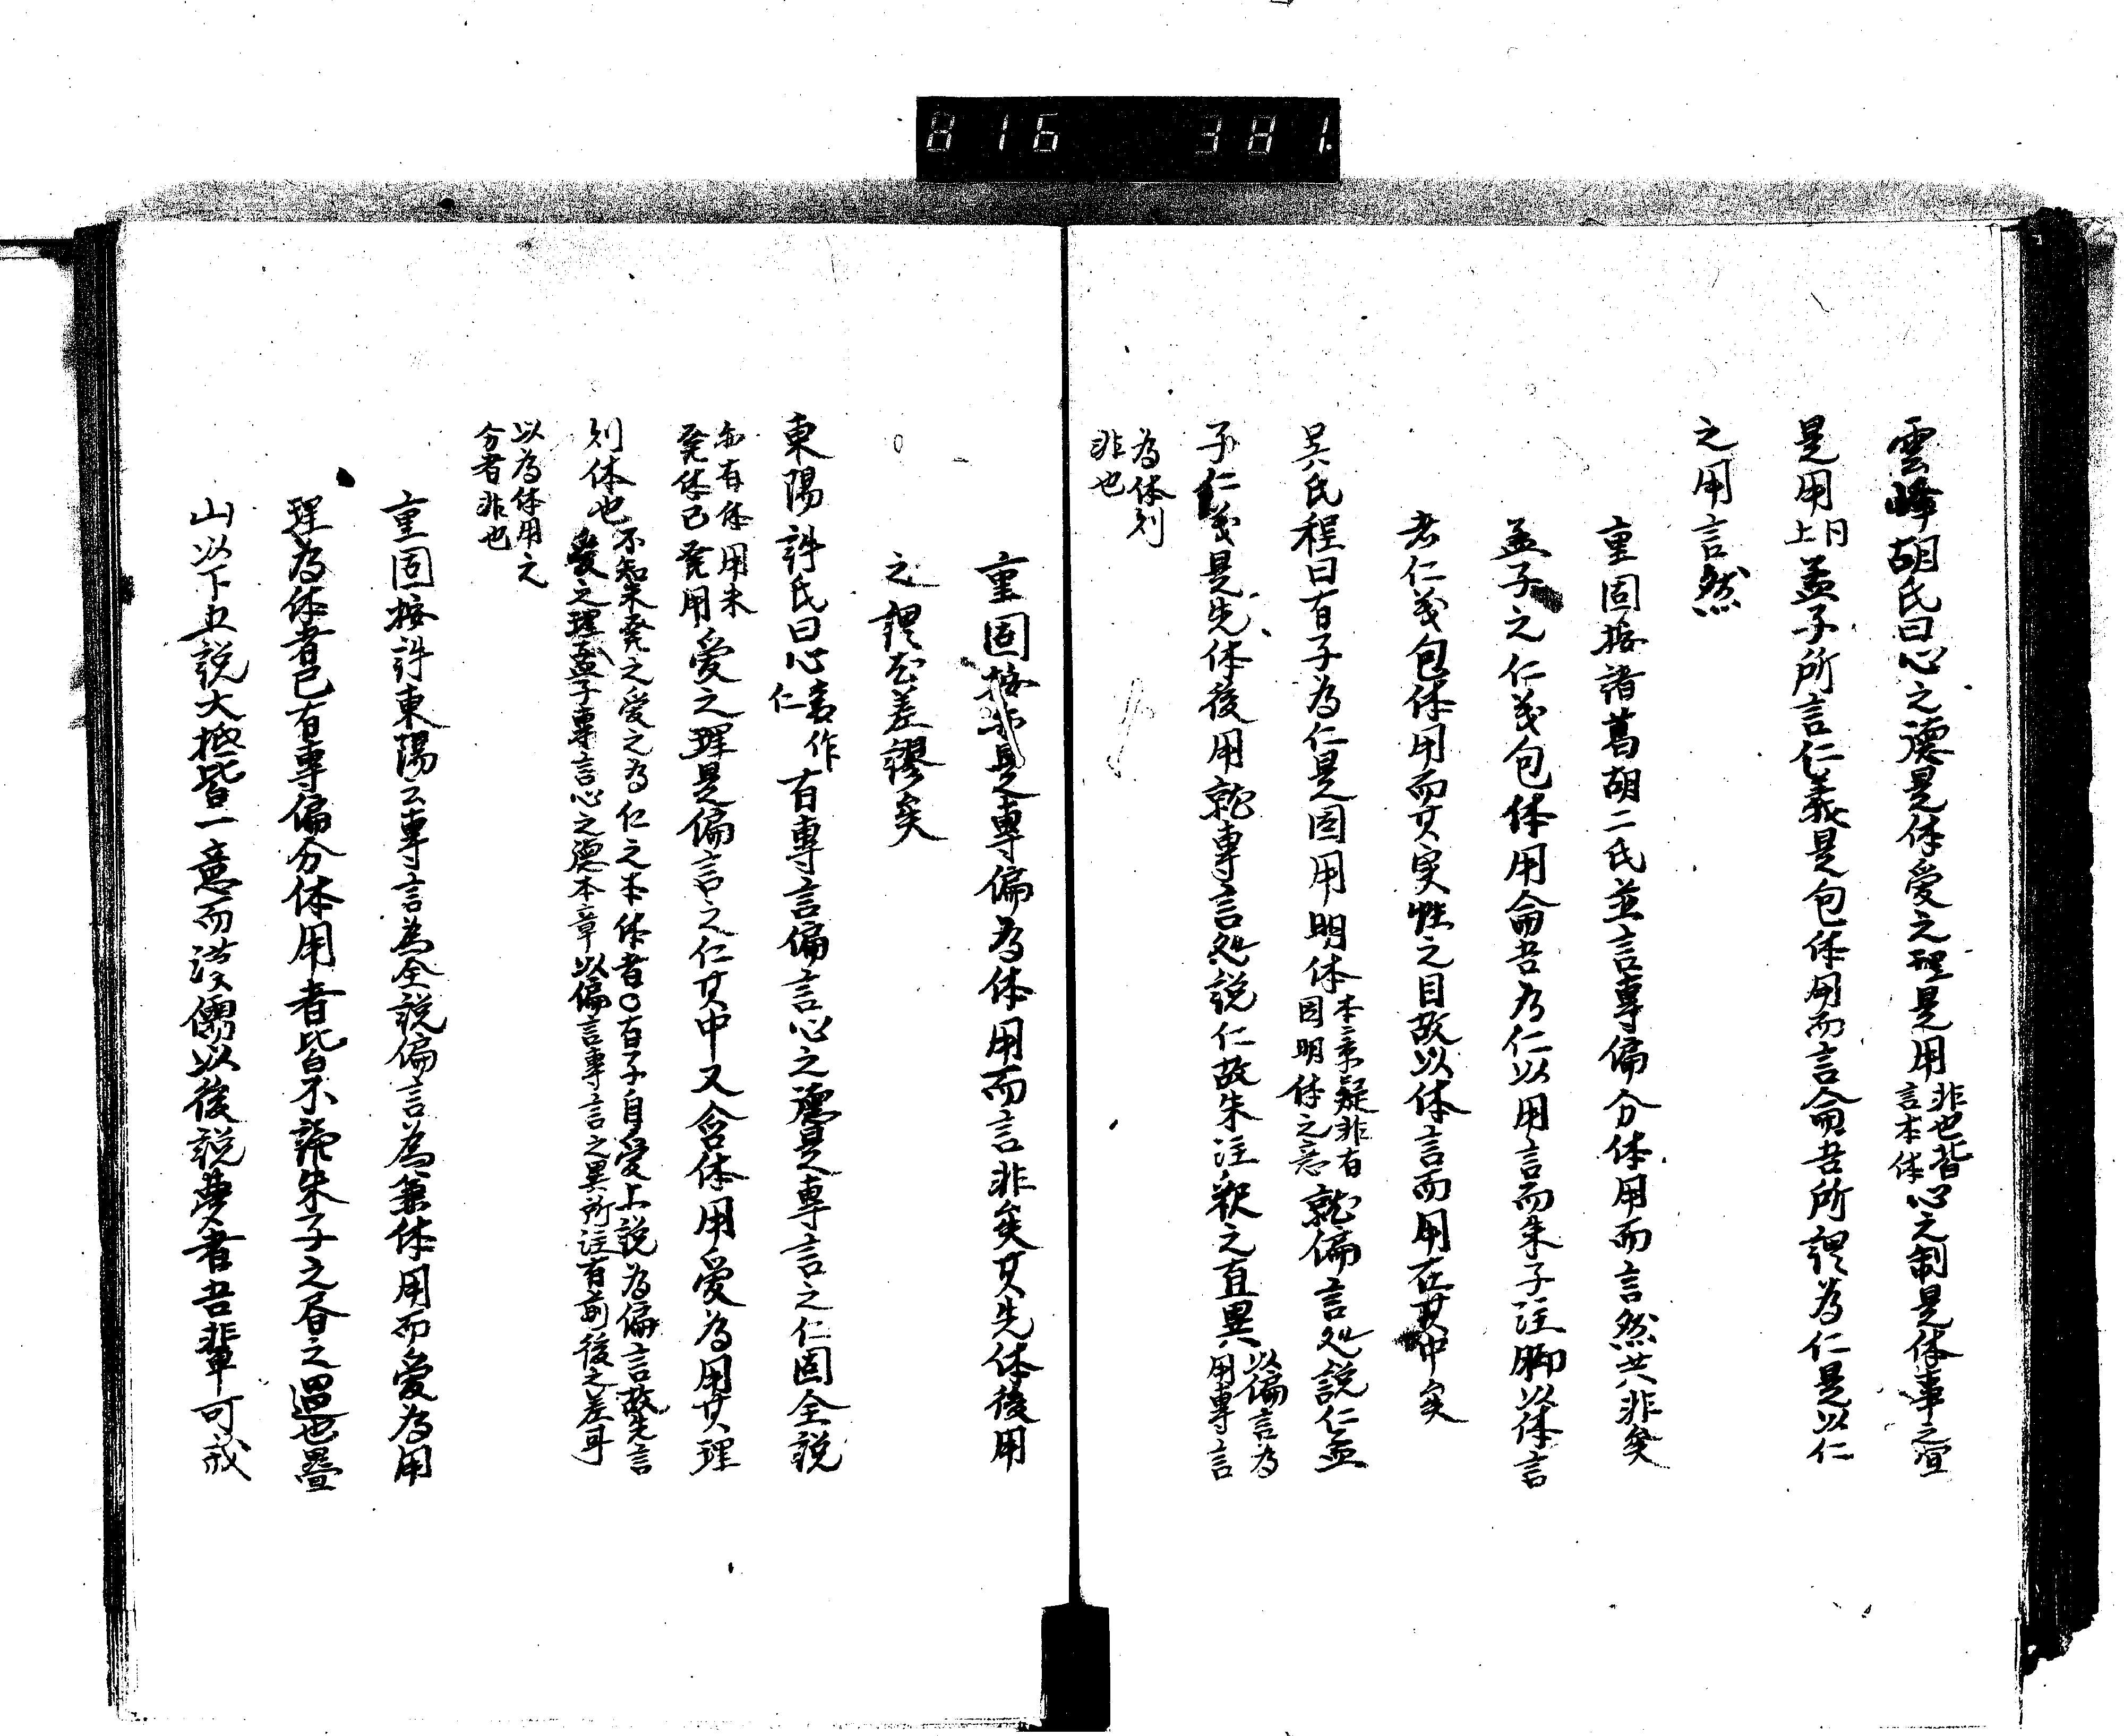 816 381.
雲峰胡氏曰心之德是体愛之理是用非也皆言本体心之制是体事之宜
是用同上孟子所言仁義是包体用而言侖吾所謂為仁是以仁
之用言然
重固按諸葛胡二氏並言專偏分体用而言然共非矣
孟子之仁義包体用侖吾为仁以用言而朱子注脚以体言
者仁義包体用而其実性之目故以体言而用在其中矣
吴氏程曰有子為仁是因用明体本章疑非有因明体之意就偏言処說仁孟
子仁義是先体後用就專言処說仁故朱注釈之互異以偏言為用專言
為体則非也
重固按亦是專偏为体用而言非矣其先体後用
之謂尤差謬矣
東陽許氏曰心言作仁有專言偏言心之德是專言之仁固全說
而有体用未発体已発用愛之理是偏言之仁其中又含体用愛為用其理
則体也不知未発之愛之為仁之本体者〇有子自愛上說为偏言故先言愛之理孟子專言心之德本章以偏言專言之異所注有前後之差耳
以為体用之分者非也
重固按許東陽云專言為全說偏言為兼体用而愛为用
理為体者已有專偏分体用者皆不読朱子之書之過也畳
山以下五說大抵皆一意而漢儒以後說費者吾輩可戒